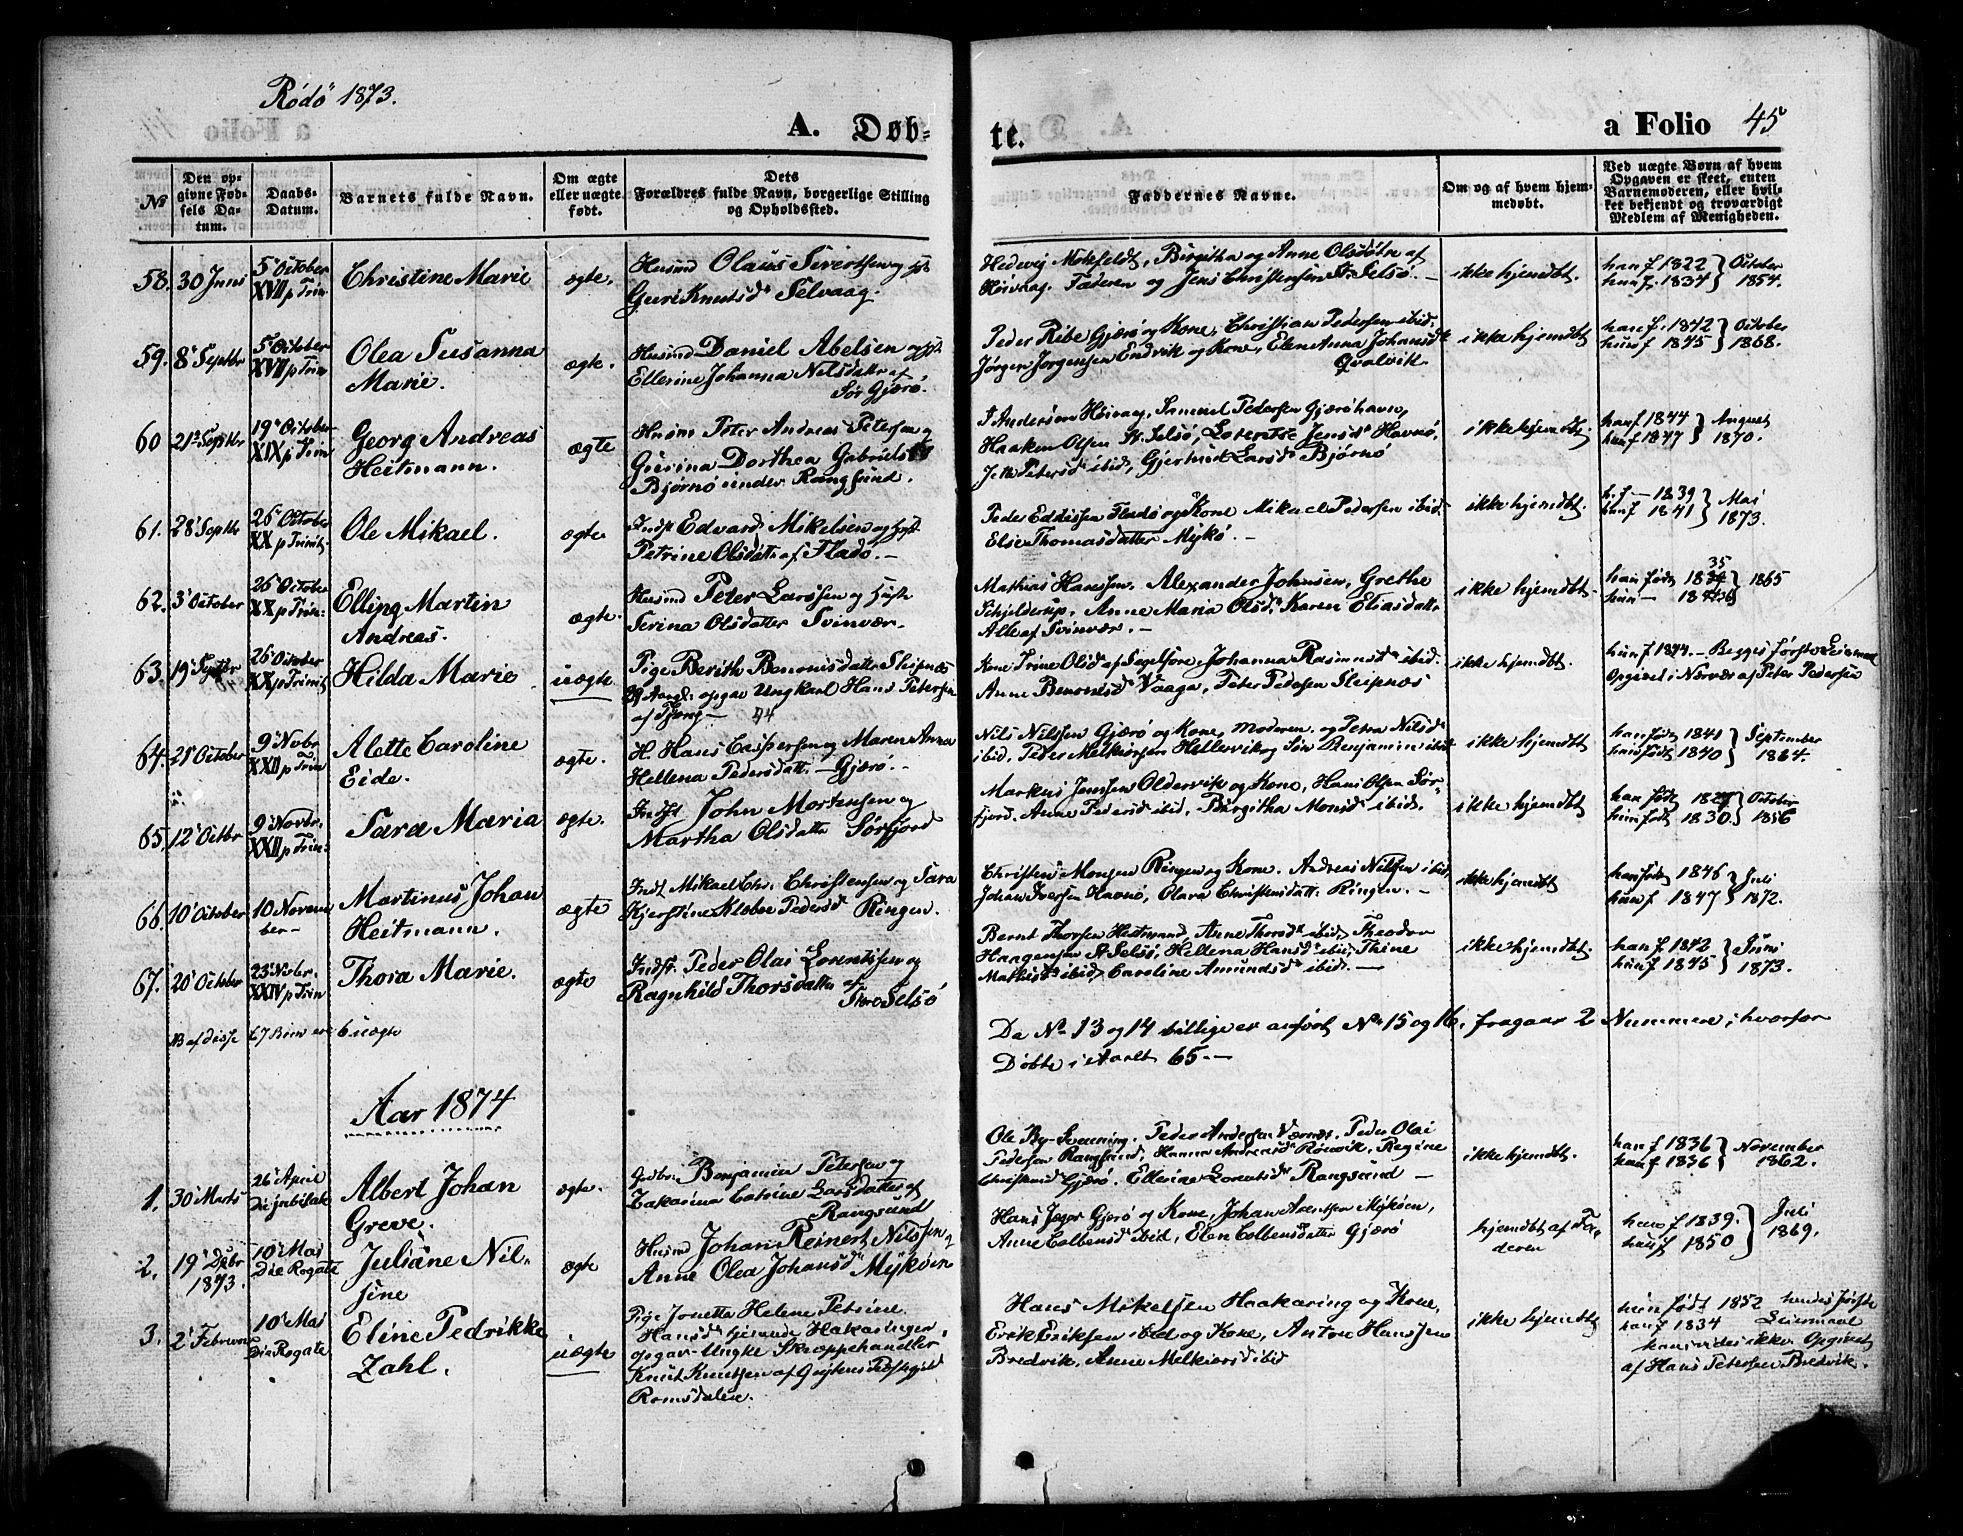 Rödö 1873.
A. Døb-
te.
a Folio 45
№
Den op-
givne Fød-
sels Da-
tum.
Daabs-
Datum.
Barnets fulde Navn.
Om ægte
eller uægte
født.
Dets
Forældres fulde Navn, borgerlige Stilling
og Opholdssted.
Faddernes Navne.
Om og af hvem hjem-
medøbt.
Ved uægte Børn af hvem
Opgaven er skeet, enten
Barnemoderen, eller hvil-
ket bekjendt og troværdigt
Medlem af Menigheden.
58. 30 Juni
5 October
XVII p Trin
Christine Marie
ægte.
Husmd Olaus Sivertsen og
Guri Knutsd Selvaag.
Hedevig Mokfeldt, Birgitha og Anne Olsdøtre af
Høivaag. Faderen og Jens Christensen St. Selsø.
ikke hjemdbt
han f 1822
hun f. 1834
October
1854.
59. 8 Septbr
5 October
XVII p Trin
Olea Susanna
Marie.
ægte.
Husmd Daniel Abelsen og
Ellerine Johanna Nilsdatter af
Sør Gjærø.
Peder Ribe Gjærø og Kone, Christian Pedersen ibid.
Jørgen Jørgensen Endvik og Kone, Elen Anna Johansd
Qvalvik
ikke hjemdbt
han f. 1842
hun f 1845
October
1868.
60 21 Septbr
19 October
XIX p Trin
Georg Andreas
Heitmann.
ægte
Husm Peter Andreas Petersen og
Gurina Dorthea Gabrielsd
Bjørnø under Rangsund.
Andersen Høivaag, Samuel Pedersen Gjærøhavn,
Haaken Olsen St. Selsø, Lorentse Jensd Havnø,
Petersd ibid, Gjertrud Larsd Bjørnø
ikke hjemdbt
han f 1844
hun f 1847
August
1870.
61. 28 Septbr
26 October
XX p Trinit
Ole Mikael.
ægte
Indst Edvard Mikelsen og
Petrine Olsdatt af Fladø.
Peder Eddissen Fladø og Kone Mikael Pedersen ibid.
Else Thomasdatter Mykø.
ikke hjemdbt.
h. f - 1839
hun f 1841
Mai
1873.
62. 3 October
26 October
XX p Trin.
Elling Martin
Andreas.
ægte.
Husmd Peter Larssen og
Serina Olsdatter Svinvær.
Mathias Hanssen, Alexander Johnsen, Grethe
Schjelderup, Anne Maria Olsd, Karen Eliasdatt
Alle af Svinvær.
ikke hjemdbt
35
han født
hun
1865
63. 19 Septbr
26 October
XX p Trinit
Hilda Marie
uægte
Pige Berith Benonisdatter Sleipnes
opgav Ungkarl Hans Petersen
af Tjong 44
Kone Trine Olsd af Segelfore Johanna Rasmusd ibid.
Anne Benonisd Vaaga, Peter Pedersen Sleipnes
ikke hjemdbt.
hun f 1844. Begges første Leiermaal
Opgivet i Nærvær af Peter Pedersen
64. 21 October
9 Novbr
XXII p Trin
Alette Caroline
Eide.
ægte.
H. Hans Caspersen og Maren Anna
Hellena Pedersdatt. - Gjærø.
Nils Nilssen Gjærø og Kone, Moderen og Petra Nilsd
ibid. Peder Melkiorsen Hellervik og Søn Benjamin ibid
ikke hjemdbt
han født 1841
hun født 1840
September
1864.
65. 12 Octbr
9 Novbr.
XXII p Trin.
Sara Maria
ægte.
Indst John Mortensen og
Martha Olsdatter Sørfjord
Markus Jenssen Oldervik og Kone, Hans Olsen Sør-
fjord. Anne Pedersd ibid. Birgitha Monsd ibid.
ikke hjemdbt
han født
hun født 1830.
October
1856
66. 10 October
10 Novem
ber-
Martinus Johan
Heitmann.
ægte
Indst Mikael Chr. Christensen og Sara
Kjerstine Klæboe Pedersd Ringen.
Christen Monsen Ringen og Kone. Andreas Nilsen ibid.
Johan Iversen Havnø, Olava Christensdatt. Ringen.
ikke hjemdbt
han født 1846
hun f 1847
Juli
1872.
67. 20 October
23 Novbr.
XXIV p Trin
Thora Marie.
ægte
Indst. Peder Olai Lorentssen og
Ragnhild Thorsdatter af
Store Selsø
Bernt Thorsen Heitmand, Anne Thorsd ibid, Theodor
Haagensen St Selsø, Hellena Hansd ibid, Trine
Mathisd ibid, Caroline Amundsd ibid.
ikke hjemdbt
han f. 1842
hun f 1845
Juni
1873.
NB af disse 67 Børn ere 6 uægte
Da No 13 og 14 tillige er anført No 15 og 16, fragaar 2 Nummere, hvorfor
Døbte i Aaret 65.-
Aar 1874
1. 30 Marts
26 April
Die jubilate
Albert Johan
Greve.
ægte.
Gdbr. Benjamin Petersen og
Zakarina Catrine Larsdatter af
Rangsund
Ole By-Svenning. Peder Andersen Værnæs. Peder Olai
Pedersen Rangsund, Hanna Andreasd Reinvik, Regine
Christensd Gjærø. Ellerine Lorentsd Rangsund
ikke hjemdbt.
han f 1836
hun f 1836
November
1862.
2. 19 Dcbr
1873.
10 Mai
Die Rogate
Juliane Nil-
sine
ægte
Husmd Johan Reinert Nilssen og
Anne Olea Johansd Mykøen
Hans Jeger Gjærø og Kone, Johan Arentsen Mykøen,
Anne Colbensd ibid, Elen Colbensdatter Gjærø
hjemdbt af Fa-
deren
han f 1839.
hun f 1850
Juli
1869.
3. 2 Februar
10 Mai
Die Rogate
Eline Pedrikke
Zahl.
uægte
Pige Jonetta Helene Petrine
Hansd tjenende Hakaringer
opgav Ungk. Skræppehandler
Knut Knutsen af Grytens Præstegjeld
Romsdalen.
Hans Mikelsen Haakaring og Kone,
Erik Eriksen ibid og Kone, Anton Hanssen
Bredvik, Anne Melkiorsd ibid
ikke hjemdbt
hun født 1852 hendes første
han f 1834 Leiermaal
hans vides ikke. Opgivet
af Hans Petersen Bredvik.